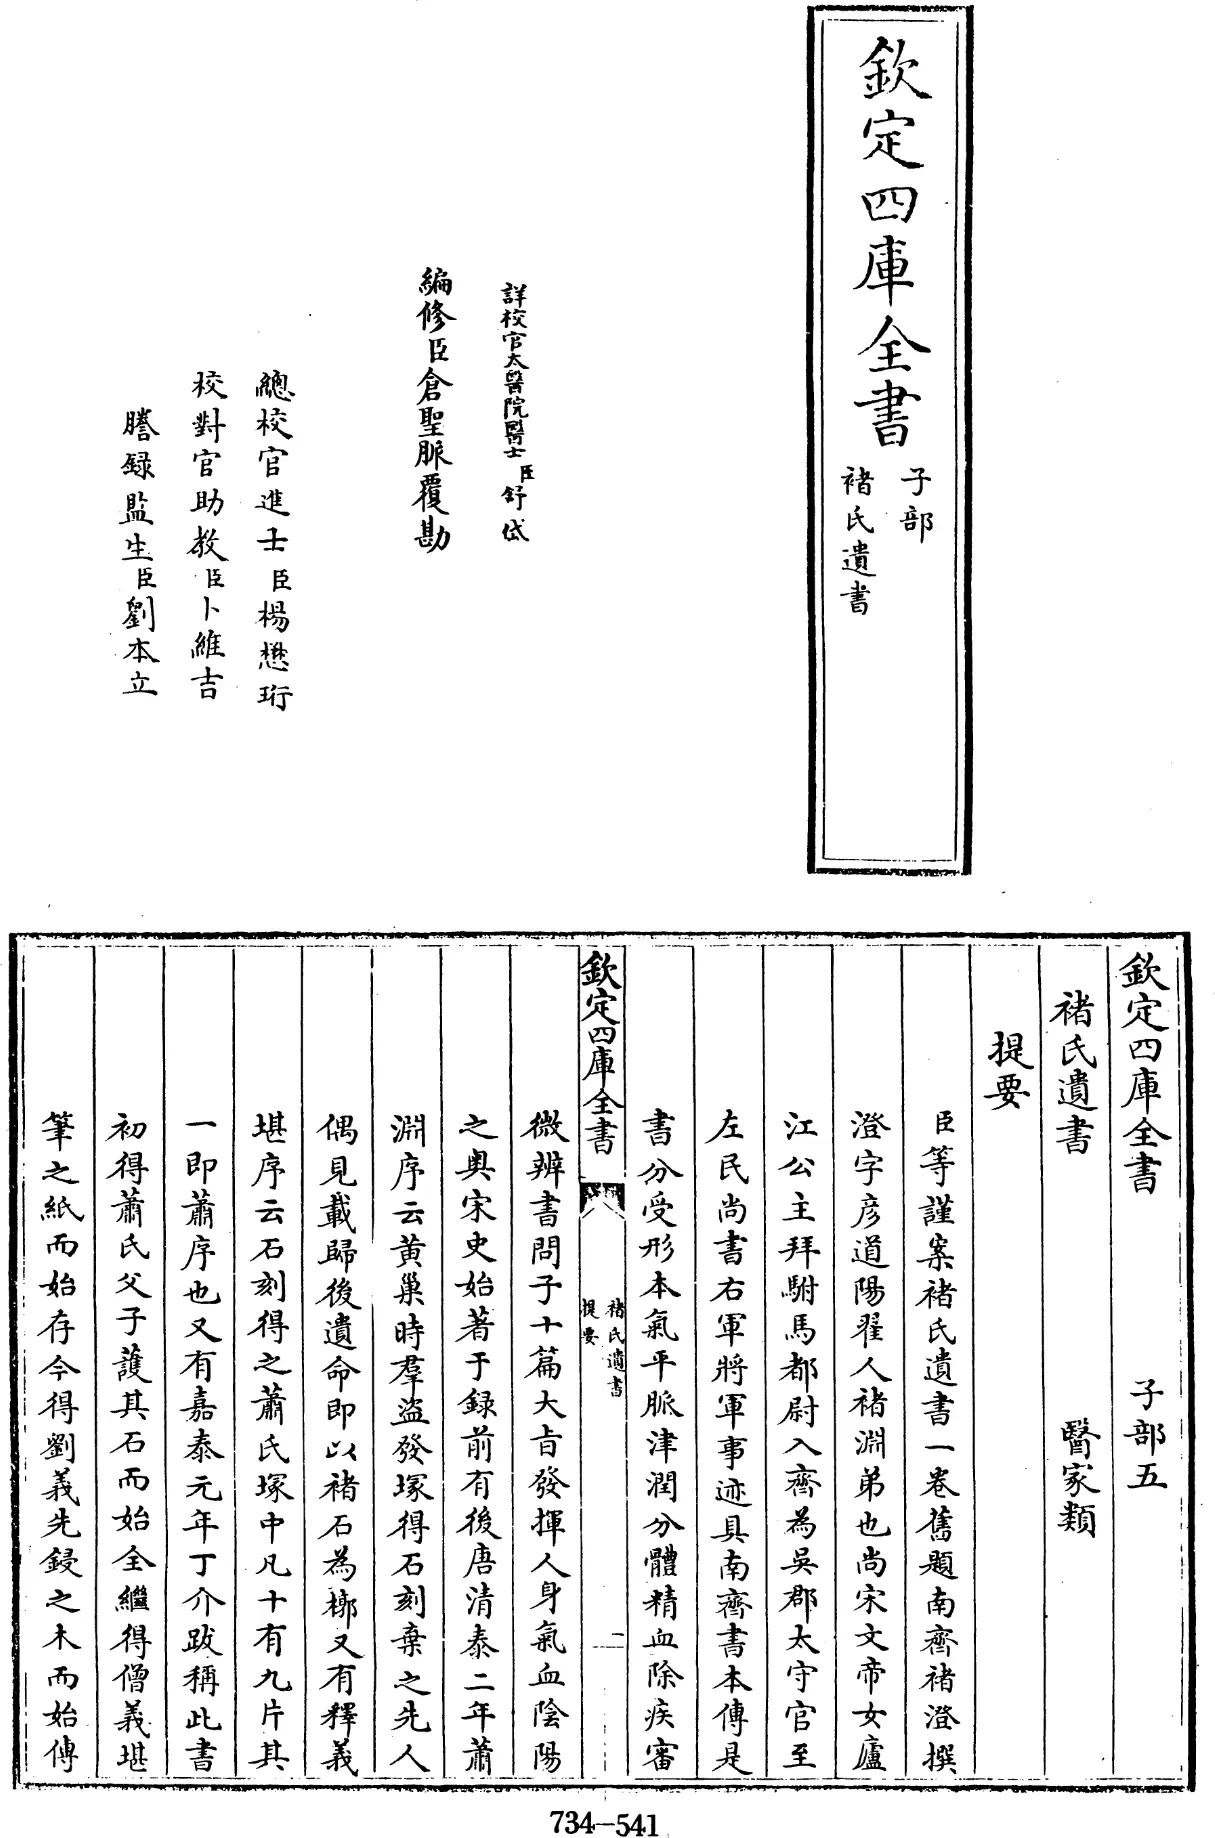 欽定四庫全書
子部
褚氏遺書
詳校官太醫院醫士臣舒岱
編修臣倉聖脈覆勘
總校官進士臣楊懋珩
校對官助教臣卜維吉
謄録監生臣劉本立
欽定四庫全書 子部五
褚氏遺書 醫家類
提要
臣等謹案褚氏遺書一卷舊題南齊褚澄撰
澄字彦道陽翟人褚淵弟也尚宋文帝女廬
江公主拜駙馬都尉入齊為吳郡太守官至
左民尚書右軍將軍事迹具南齊書本傳是
書分受形本氣平脈津潤分體精血除疾審
欽定四庫全書
褚氏遺書
提要
一
微辨書問子十篇大㫖發揮人身氣血陰陽
之奥宋史始著于録前有後唐清泰二年蕭
淵序云黄巢時羣盗發塜得石刻棄之先人
偶見載歸後遺命即以褚石為槨又有釋義
堪序云石刻得之蕭氏塚中凡十有九片其
一即蕭序也又有嘉泰元年丁介跋稱此書
初得蕭氏父子護其石而始全繼得僧義堪
筆之紙而始存今得劉義先鋟之木而始傳
734-541